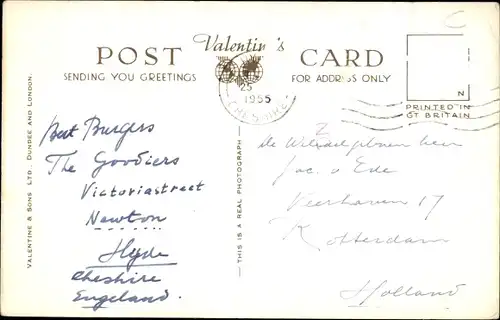 POST Valentine's CARD
SENDING YOU GREETINGS
FOR ADDRESS ONLY
25
1955
CHESHIRE
N
PRINTED IN
GT BRITAIN
VALENTINE & SONS LTD., DUNDEE AND LONDON.
THIS IS A REAL PHOTOGRAPH
Best Burgers
The Goodiers
Victoriastreet
Newton
Hyde
Cheshire
Engeland.
De
Jac. v Ede
Veerhaven 17
Rotterdam
Holland